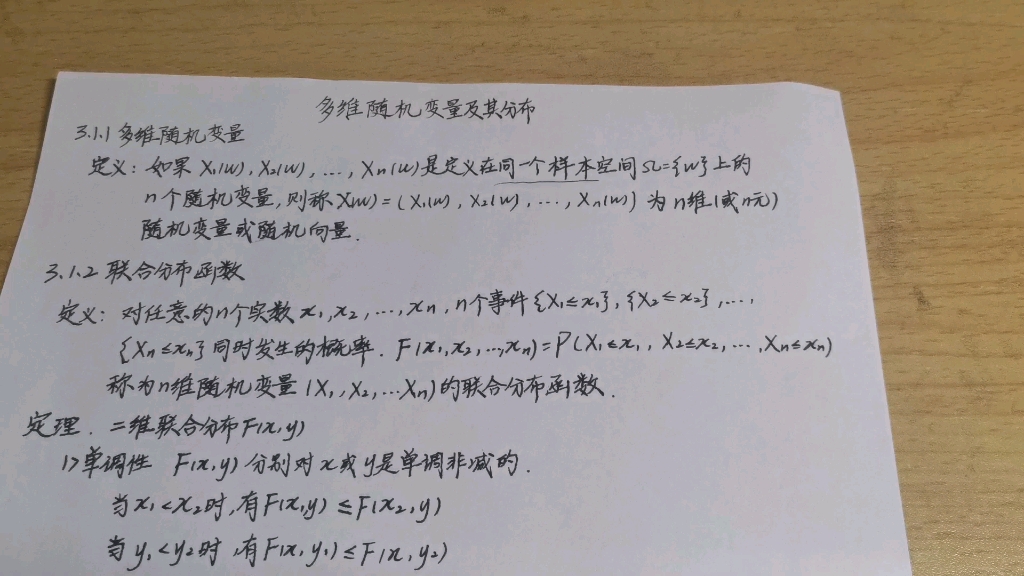 多维随机变量及其分布
3.1.1 多维随机变量
定义：如果 X₁(ω), X₂(ω), ..., Xn(ω)是定义在同一个样本空间Ω={ω}上的
n个随机变量,则称X(ω)=(X₁(ω), X₂(ω), ..., Xn(ω)) 为n维(或n元)
随机变量或随机向量.
3.1.2 联合分布函数
定义: 对任意的n个实数 x₁,x₂,...,xn, n个事件{X₁≤x₁},{X₂≤x₂},...,
{Xn≤xn}同时发生的概率. F(x₁,x₂,...,xn)=P(X₁≤x₁, X₂≤x₂, ..., Xn≤xn)
称为n维随机变量(X₁,X₂,...Xn)的联合分布函数.
定理. 二维联合分布F(x,y)
1>单调性 F(x,y) 分别对x或y是单调非减的.
当x₁<x₂时,有F(x₁,y)≤F(x₂,y)
当y₁<y₂时,有F(x,y₁)≤F(x,y₂)